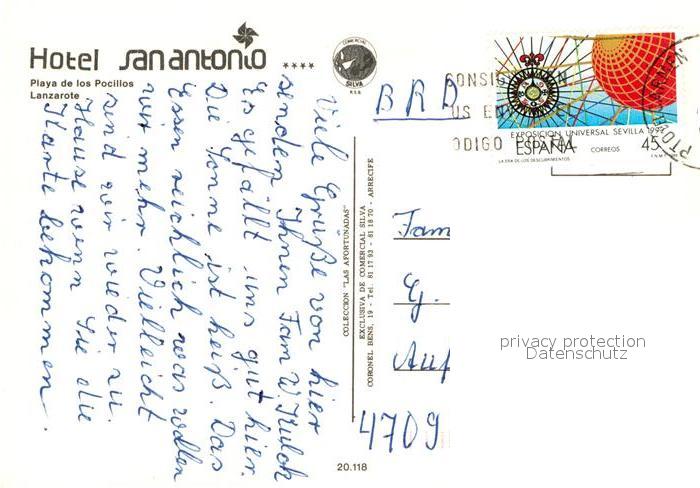 Hotel san antonio ****
Playa de los Pocillos
Lanzarote
COMERCIAL
SILVA
Viele Grüße von hier
senden Ihnen Fam W
Es gefällt uns gut hier.
Die Sonne ist heiß. Das
Essen reichlich was wollen
wir mehr. Vielleicht
sind wir wieder zu
Hause wenn Sie die
Karte bekommen.
COLECCION "LAS AFORTUNADAS"
EXCLUSIVA DE COMERCIAL SILVA
CORONEL BENS, 19 - Tel. 81 17 93 - 81 18 70 - ARRECIFE
20.118
BRD
CONSIG
US EN
ODIGO POSTAL
EXPOSICION UNIVERSAL SEVILLA 1992
ESPAÑA CORREOS 45
LA ERA DE LOS DESCUBRIMIENTOS
Fam
G.
4709
privacy protection
Datenschutz